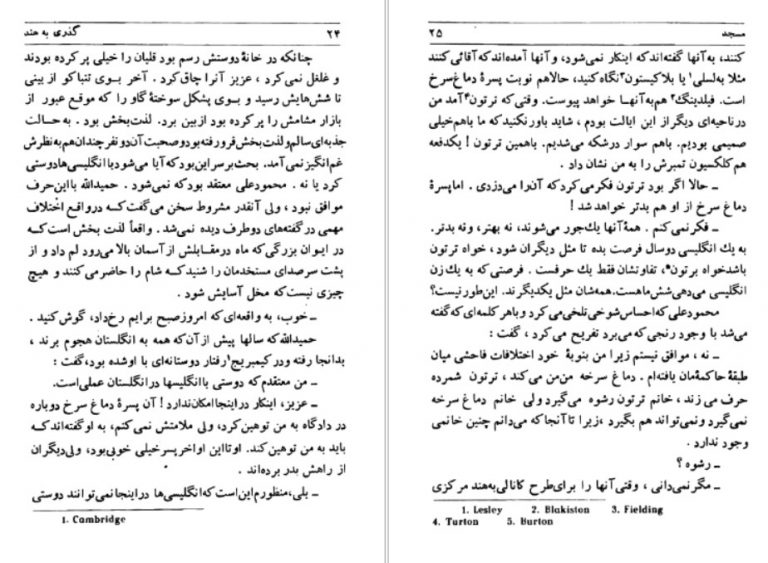 ۲۴ گذری به هند
چنانکه در خانهٔ دوستش رسم بود قلیان را خیلی پر کرده بودند
و غلغل نمی‌کرد ، عزیز آنرا چاق کرد . آخر بوی تنباکو از بینی
تا شش‌هایش رسید و بوی پشکل سوختهٔ گاو را که موقع عبور از
بازار مشامش را پر کرده بود از بین برد. لذت‌بخش بود . به حالت
جذبه‌ای سالم و لذت بخش فرو رفته بود و صحبت آن دو نفر چندان هم به نظرش
غم‌انگیز نمی‌آمد. بحث بر سر این بود که آیا می‌شود با انگلیسی‌ها دوستی
کرد یا نه . محمودعلی معتقد بود که نمی‌شود . حمیدالله با این حرف
موافق نبود ، ولی آنقدر مشروط سخن می‌گفت که در واقع اختلاف
مهمی در گفته‌های دو طرف دیده نمی‌شد. واقعاً لذت بخش است که
در ایوان بزرگی که ماه در مقابلش از آسمان بالا می‌رود لم داد و از
پشت سر صدای مستخدمان را شنید که شام را حاضر می‌کنند و هیچ
چیزی نیست که مخل آسایش شود .
ـ خوب، به واقعه‌ای که امروز صبح برایم رخ داد، گوش کنید .
حمیدالله که سالها پیش از آن که همه به انگلستان هجوم برند ،
بدانجا رفته و در کیمبریج۱ رفتار دوستانه‌ای با او شده بود، گفت :
ـ من معتقدم که دوستی با انگلیسها در انگلستان عملی است.
ـ عزیز، اینکار در اینجا امکان ندارد ! آن پسرهٔ دماغ سرخ دوباره
در دادگاه به من توهین کرد، ولی ملامتش نمی‌کنم، به او گفته‌اند که
باید به من توهین کند. او تا این اواخر پسر خیلی خوبی بود، ولی دیگران
از راهش بدر برده‌اند .
ـ بلی، منظورم این است که انگلیسی‌ها در اینجا نمی‌توانند دوستی
1. Cambridge
مسجد ۲۵
کنند، به آنها گفته‌اند که اینکار نمی‌شود، و آنها آمده‌اند که آقائی کنند
مثلا به لسلی۱ یا بلاکیستون۲ نگاه کنید، حالا هم نوبت پسرهٔ دماغ سرخ
است. فیلدینگ۳ هم به آنها خواهد پیوست. وقتی که ترتون۴ آمد من
در ناحیه‌ای دیگر از این ایالت بودم ، شاید باور نکنید که ما با هم خیلی
صمیمی بودیم. باهم سوار درشکه می‌شدیم. با همین ترتون ! یکدفعه
هم کلکسیون تمبرش را به من نشان داد .
ـ حالا اگر بود ترتون فکر می‌کرد که آن را می‌دزدی . اما پسرهٔ
دماغ سرخ از او هم بدتر خواهد شد !
ـ فکر نمی‌کنم . همهٔ آنها یك‌جور می‌شوند، نه بهتر، و نه بدتر.
به یك انگلیسی دو سال فرصت بده تا مثل دیگران شود ، خواه ترتون
باشد خواه برتون۵، تفاوتشان فقط یك حرفست. فرصتی که به یك زن
انگلیسی می‌دهی شش ماهست. همه‌شان مثل یکدیگرند. این طور نیست؟
محمودعلی که احساس شوخی تلخی می‌کرد و با هر کلمه‌ای که گفته
می‌شد با وجود رنجی که می‌برد تفریح می‌کرد ، گفت :
ـ نه ، موافق نیستم زیرا من بنوبهٔ خود اختلافات فاحشی میان
طبقهٔ حاکمه‌مان یافته‌ام . دماغ سرخه من‌من می‌کند ، ترتون شمرده
حرف می‌زند ، خانم ترتون رشوه می‌گیرد ولی خانم دماغ سرخه
نمی‌گیرد و نمی‌تواند هم بگیرد ، زیرا تا آنجا که می‌دانم چنین خانمی
وجود ندارد .
ـ رشوه ؟
ـ مگر نمی‌دانی ، وقتی آنها را برای طرح کانالی به هند مرکزی
1. Lesley 2. Blakiston 3. Fielding
4. Turton 5. Burton